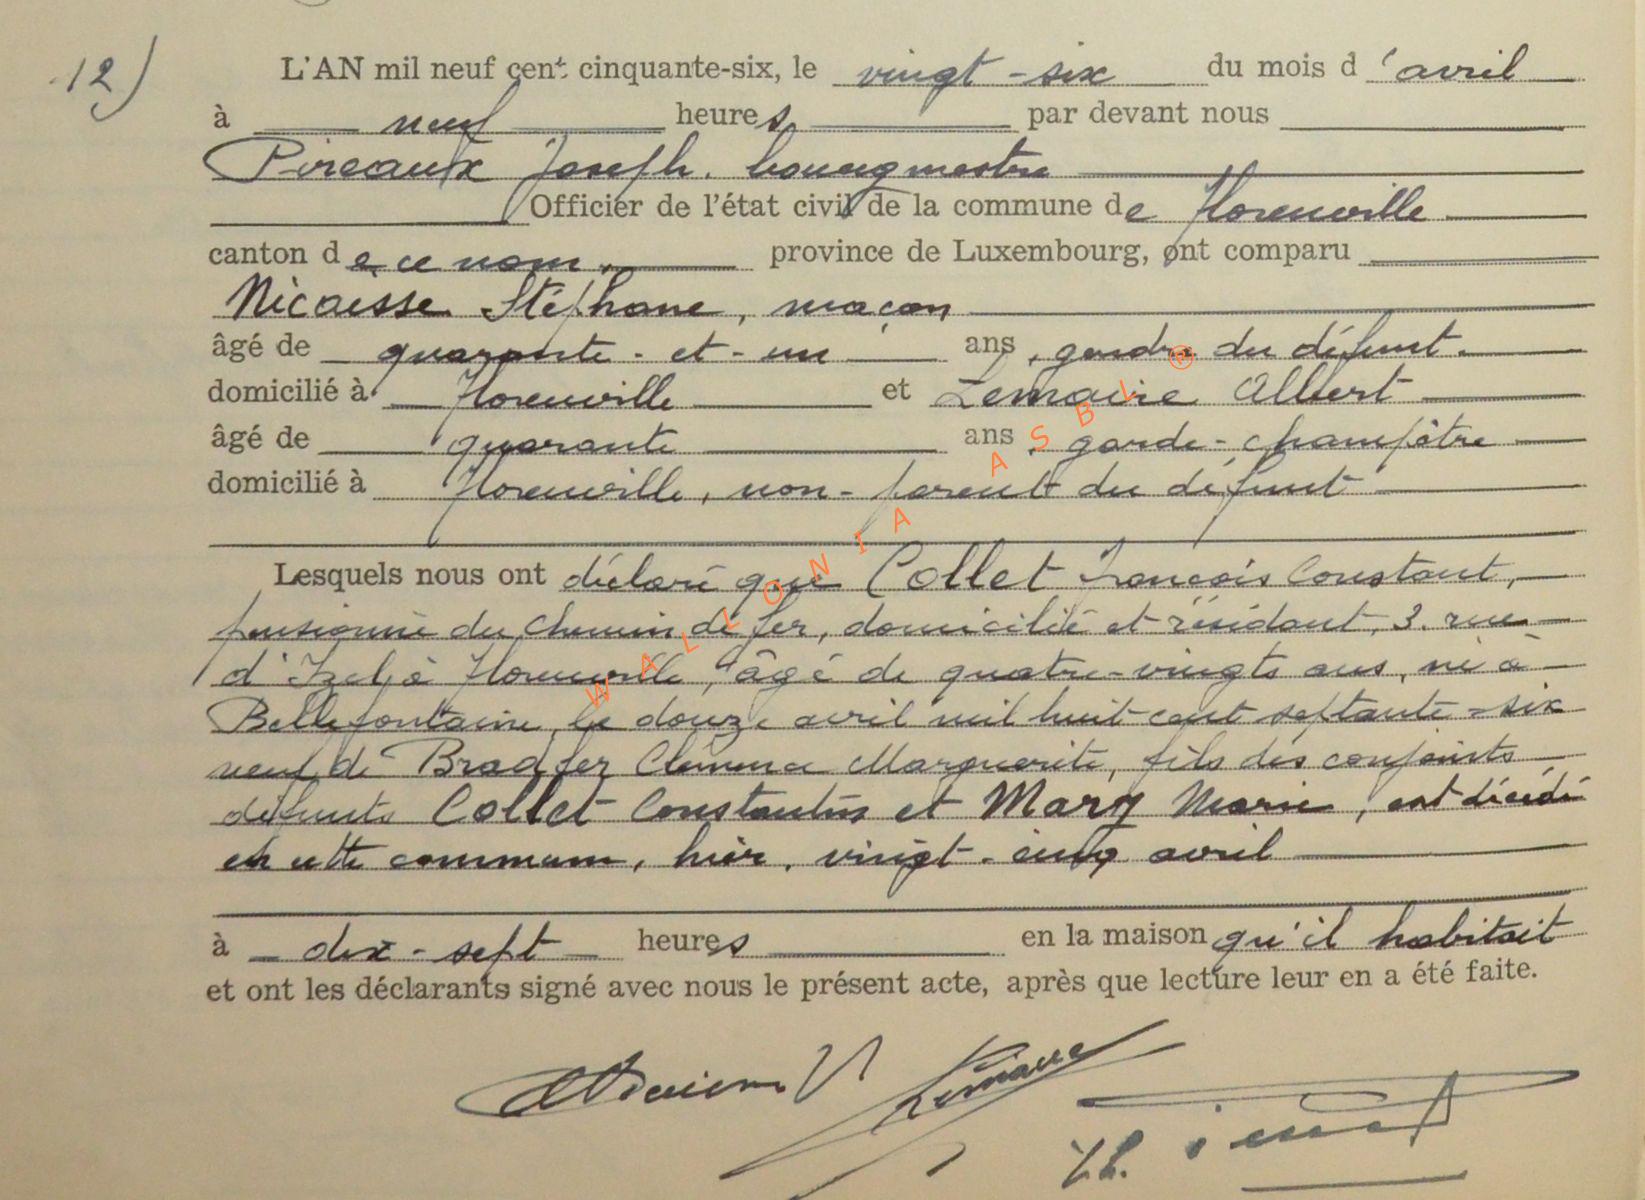 12)
L'AN mil neuf cent cinquante-six, le vingt-six du mois d'avril
à neuf heures par devant nous
Pireaux Joseph. bourgmestre
Officier de l'état civil de la commune de Florenville
canton de ce nom, province de Luxembourg, ont comparu
Nicaisse Stéphane, maçon
âgé de quarante-et-un ans, gendre du défunt.
domicilié à Florenville et Lemaire Albert
âgé de quarante ans, garde-champêtre
domicilié à Florenville, non-parent du défunt
Lesquels nous ont déclaré que Collet François Constant,
pensionné du chemin de fer, domicilié et résidant, 3. rue
d'Izel, à Florenville, âgé de quatre-vingts ans, né à
Bellefontaine, le douze avril mil huit cent septante-six
veuf de Bradfer Clémence Marguerite, fils des conjoints
défunts Collet Constantin et Mary Marie, est décédé
en cette commune, hier, vingt-cinq avril
à dix-sept heures en la maison qu'il habitait
et ont les déclarants signé avec nous le présent acte, après que lecture leur en a été faite.
Lemaire
WALLONIA ASBL ®